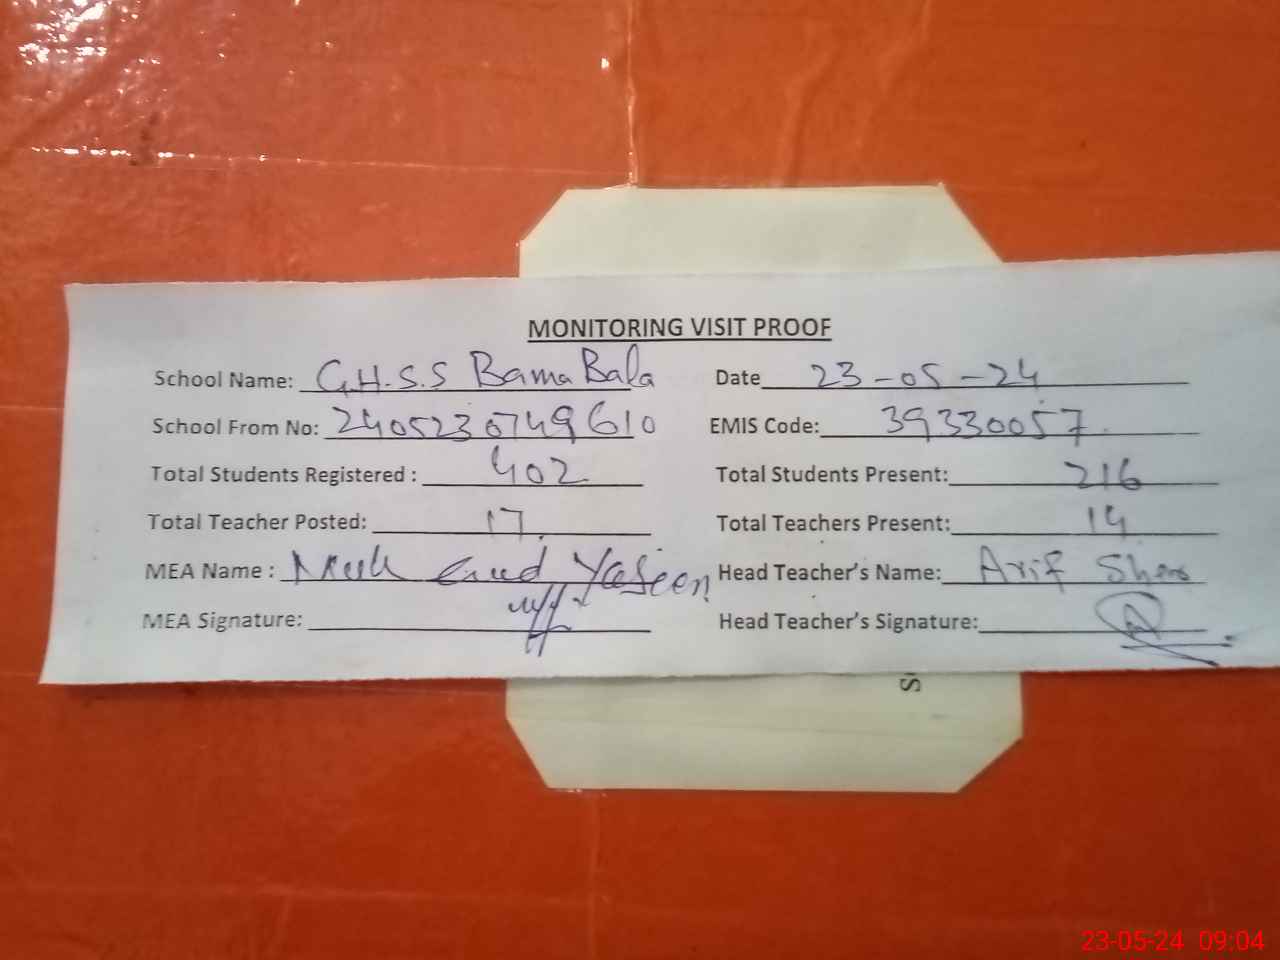 MONITORING VISIT PROOF
School Name: G.H.S.S Bama Bala Date 23-05-24
School From No: 2405230749610 EMIS Code: 39330057
Total Students Registered : 402 Total Students Present: 216
Total Teacher Posted: 17 Total Teachers Present: 14
MEA Name : Yaseen Head Teacher's Name: Arif Sher
MEA Signature: Head Teacher's Signature:
S
23-05-24 09:04